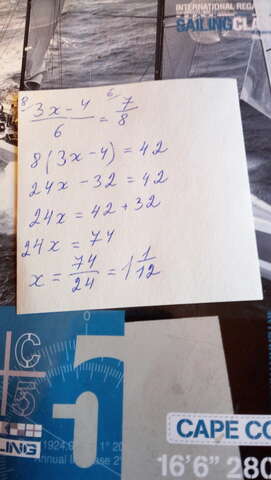 INTERNATIONAL REGA
SAILING CLA
8 3x-4 / 6 = 6 7 / 8
8(3x-4)=42
24x-32=42
24x=42+32
24x=74
x=74/24=1 1/12
C
5
5
CAPE CO
16'6" 280